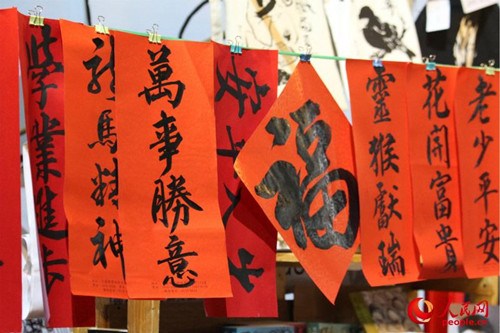 學業進步
龍馬精神
萬事勝意
福
靈猴獻瑞
花開富貴
老少平安
人民网